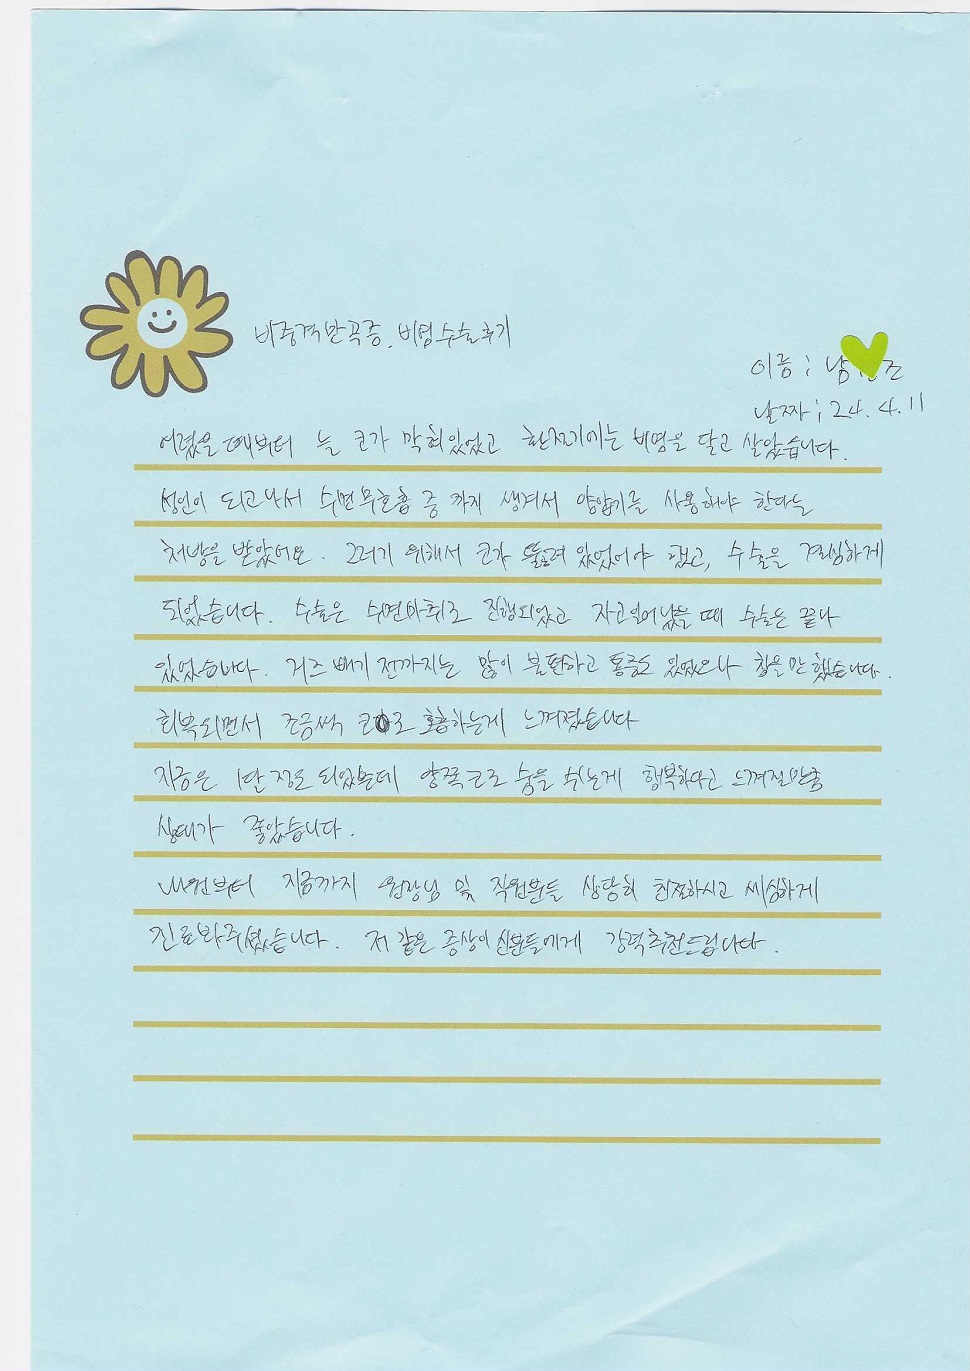 비중격만곡증, 비염수술후기
이름 : 남 조
날짜 : 24. 4. 11
어렸을 때부터 늘 코가 막혀있었고 환절기에는 비염을 달고 살았습니다.
성인이 되고나서 수면무호흡증까지 생겨서 양압기를 사용해야 한다는
처방을 받았어요. 그러기 위해서 코가 뚫려 있었어야 했고, 수술을 결심하게
되었습니다. 수술은 수면마취로 진행되었고 자고일어났을 때 수술은 끝나
있었습니다. 거즈 빼기 전까지는 많이 불편하고 통증도 있었으나 참을만 했습니다.
회복되면서 조금씩 코로 호흡하는게 느껴졌습니다
지금은 1달 정도 되었는데 양쪽코로 숨을 쉬는게 행복하다고 느껴질만큼
상태가 좋았습니다.
내원부터 지금까지 원장님 및 직원분들 상당히 친절하시고 세심하게
진료봐주셨습니다. 저 같은 증상이신분들에게 강력추천드립니다.